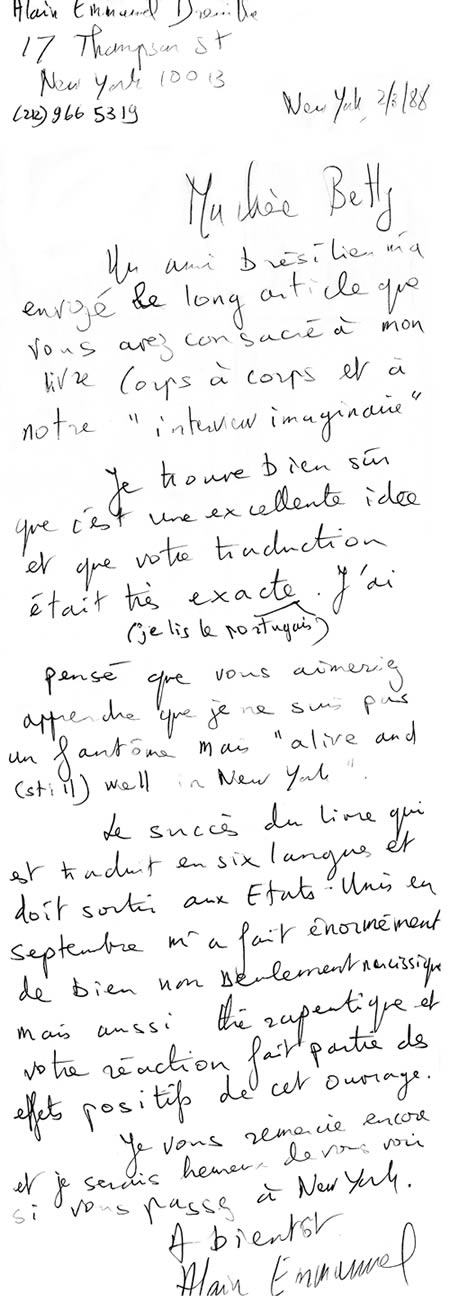 Alain Emmanuel Dreuilhe
17 Thompson St
New York 10013
(212) 966 5319
New York, 2/8/88
Ma chère Betty
Un ami brésilien m'a
envoyé le long article que
vous avez consacré à mon
livre Corps à corps et à
notre "interview imaginaire"
Je trouve bien sûr
que c'est une excellente idée
et que votre traduction
était très exacte. J'ai
(je lis le portugais)
pensé que vous aimeriez
apprendre que je ne suis pas
un fantôme mais "alive and
(still) well in New York".
Le succès du livre qui
est traduit en six langues et
doit sortir aux Etats-Unis en
septembre m'a fait énormément
de bien non seulement narcissique
mais aussi thérapeutique et
votre réaction fait partie des
effets positifs de cet ouvrage.
Je vous remercie encore
et je serais heureux de vous voir
si vous passez à New York.
A bientôt
Alain Emmanuel